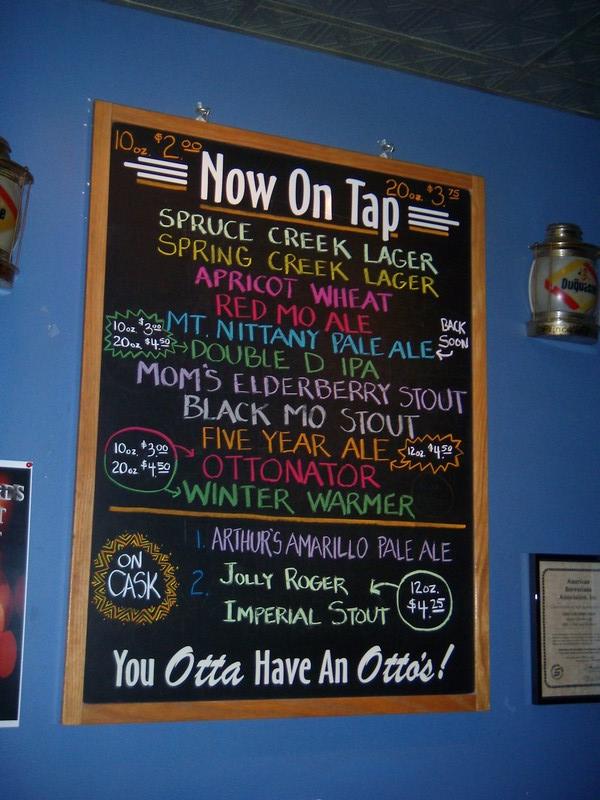 10oz. $2.00
20oz. $3.75
NOW ON TAP
SPRUCE CREEK LAGER
SPRING CREEK LAGER
APRICOT WHEAT
RED MO ALE
MT. NITTANY PALE ALE
BACK SOON
10oz. $3.00
20oz. $4.50
DOUBLE D IPA
MOM'S ELDERBERRY STOUT
BLACK MO STOUT
FIVE YEAR ALE
12oz. $4.50
10oz. $3.00
20oz. $4.50
OTTONATOR
WINTER WARMER
ON CASK
1. ARTHUR'S AMARILLO PALE ALE
2. JOLLY ROGER
IMPERIAL STOUT
12oz.
$4.25
You Otta Have An Otto's!
American
Association, Inc.